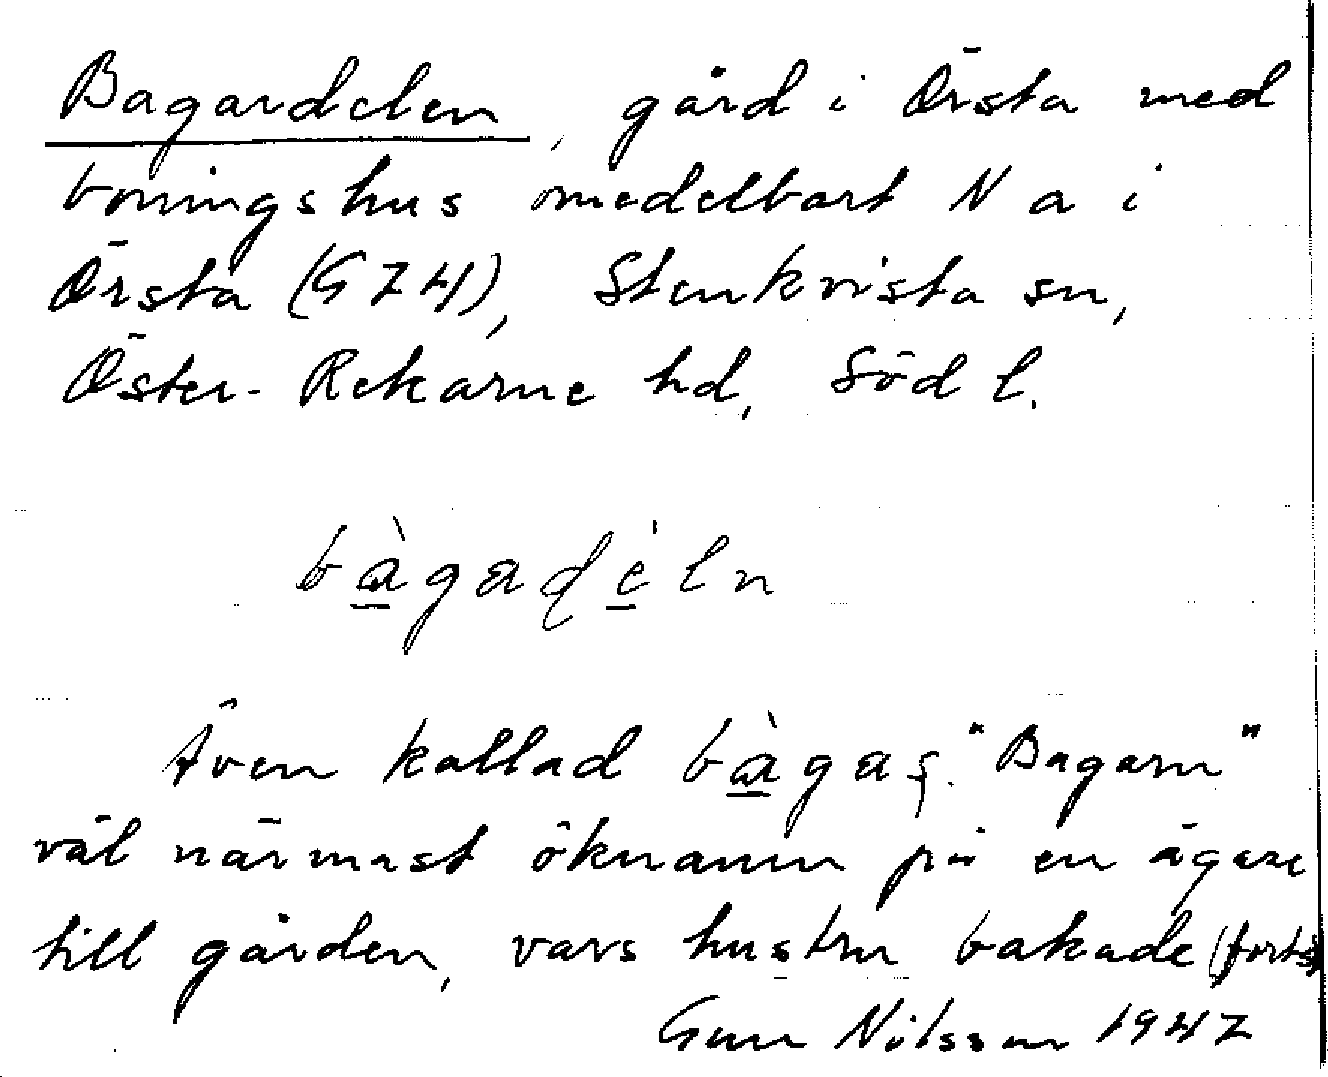 Bagardelen, gård i Örsta med
boningshus omedelbart N a i
Örsta (G74), Stenkvista sn,
Öster-Rekarne hd, Söd l.
bàgaḍèln
Även kallad bàgaṣ. "Bagarn"
väl närmast öknamn på en ägare
till gården, vars hustru bakade (forts)
Gun Nilsson 1947